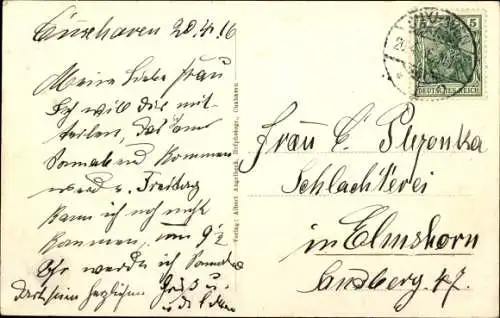 Cuxhaven 20.4.16
Meine Liebe Frau
Ich will dir mit-
teilen, das am
Sonnabend kommen
werd u. Freitag
kann ich noch nicht
kommen, um 9 1/2
Uhr werde ich Sonnab
dort sein herzlichen Gruß u.
Verlag: Albert Cuxhaven.
5
DEUTSCHES REICH
Frau C. Plyzonka
Schlachterei
in Elmshorn
Sandberg 47.